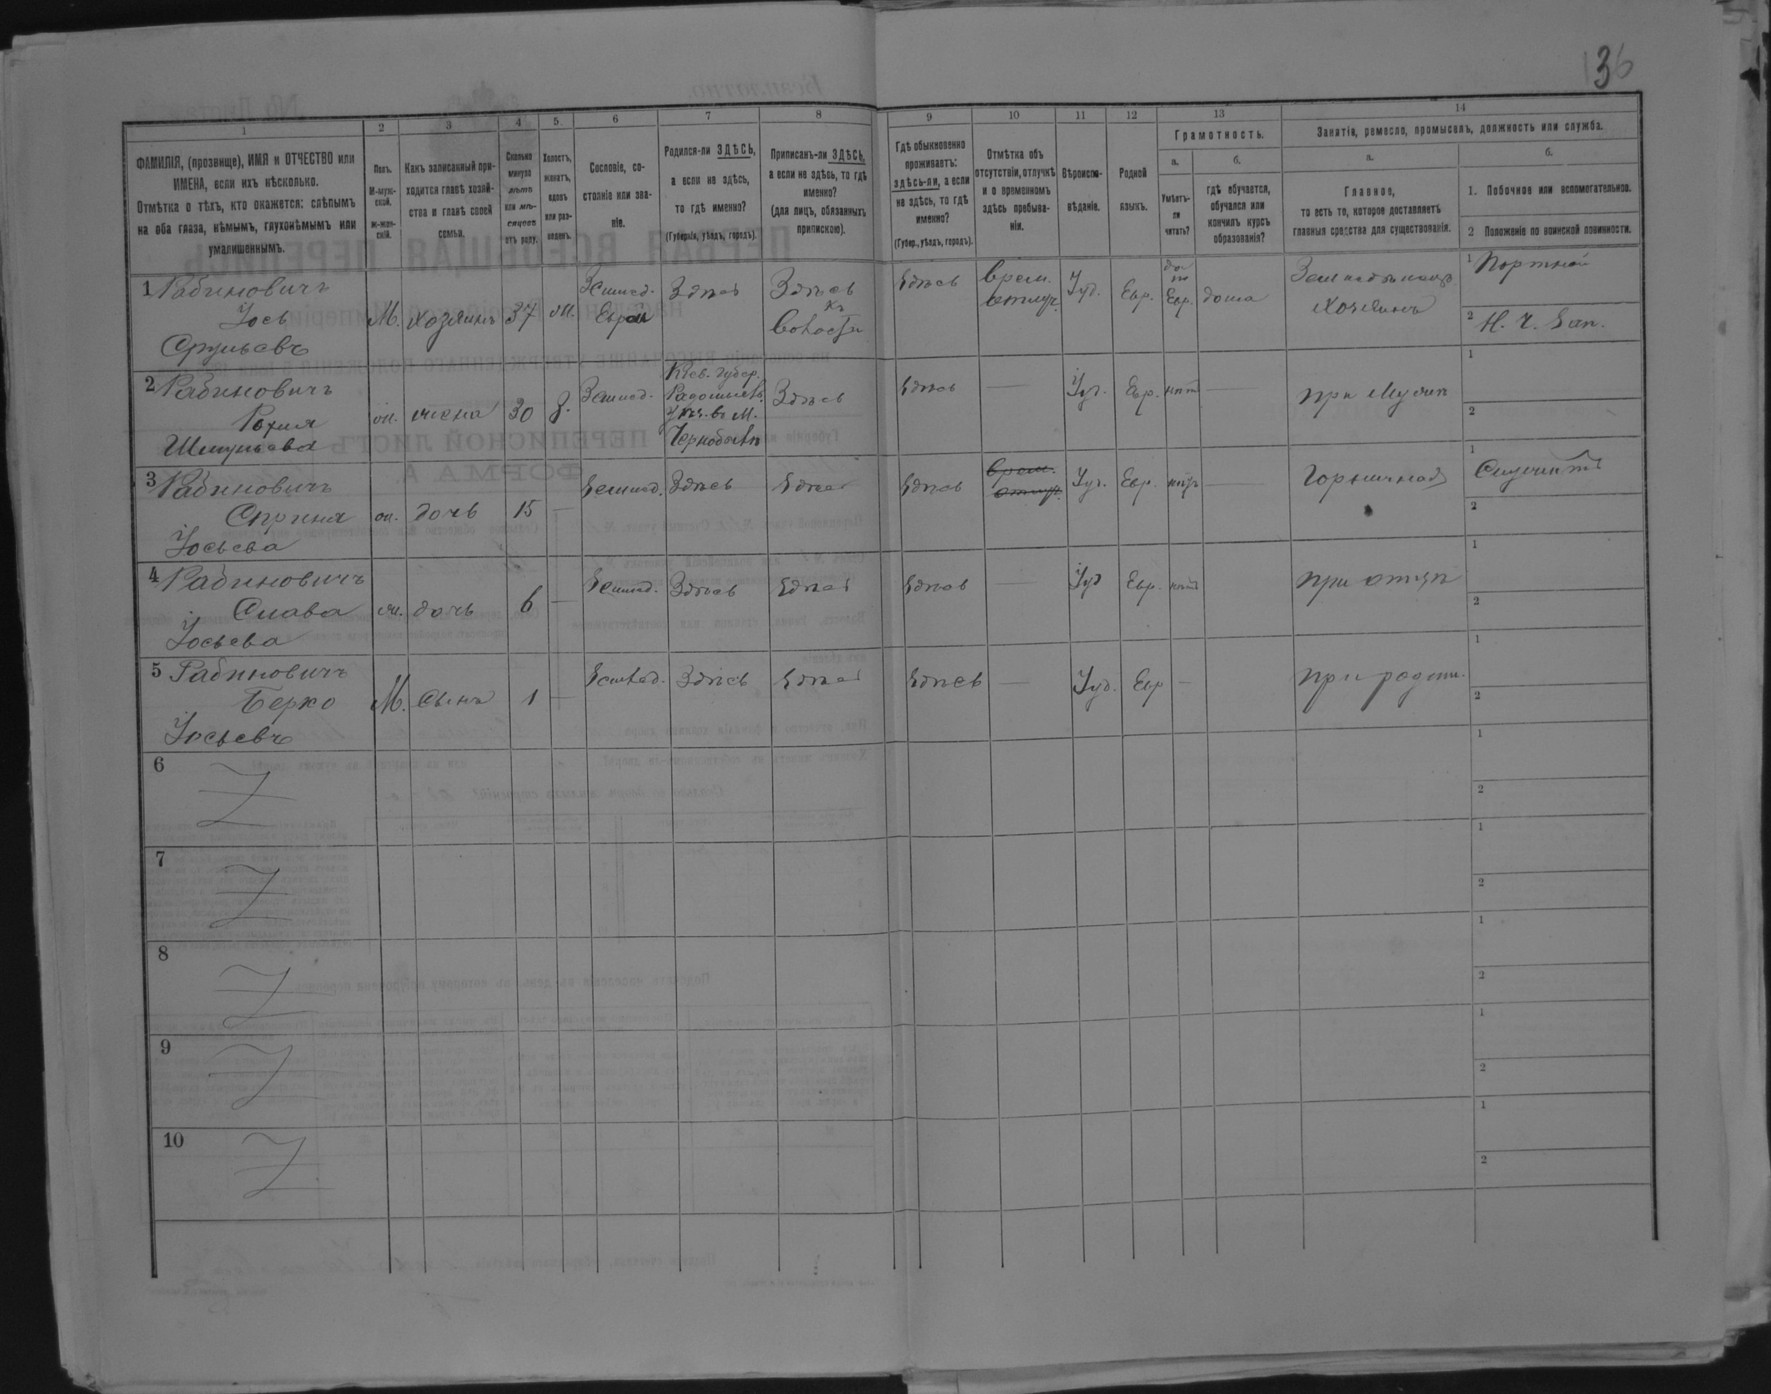 136
1
2
3
4
5
6
7
8
9
10
11
12
13
14
ФАМИЛІЯ, (прозвище), ИМЯ и ОТЧЕСТВО или
ИМЕНА, если ихъ нѣсколько.
Отмѣтка о тѣхъ, кто окажется: слѣпымъ
на оба глаза, нѣмымъ, глухонѣмымъ или
умалишеннымъ.
Полъ.
М-муж-
ской.
ж-жен-
скій.
Какъ записанный при-
ходится главѣ хозяй-
ства и главѣ своей
семьи.
Сколько
минуло
лѣтъ
или мѣ-
сяцевъ
отъ роду.
Холостъ,
женатъ,
вдовъ
или раз-
веденъ.
Сословіе, со-
стояніе или зва-
ніе.
Родился-ли ЗДѢСЬ,
а если не здѣсь,
то гдѣ именно?
(Губернія, уѣздъ, городъ).
Приписанъ-ли ЗДѢСЬ,
а если не здѣсь, то гдѣ
именно?
(для лицъ, обязанныхъ
припискою).
Гдѣ обыкновенно
проживаетъ:
здѣсь-ли, а если
не здѣсь, то гдѣ
именно?
(Губер., уѣздъ, городъ).
Отмѣтка объ
отсутствіи, отлучкѣ
и о временномъ
здѣсь пребыва-
ніи.
Вѣроиспо-
вѣданіе.
Родной
языкъ.
Грамотность.
а.
Умѣетъ-
ли
читать?
б.
гдѣ обучается,
обучался или
кончилъ курсъ
образованія?
Занятіе, ремесло, промыселъ, должность или служба.
а.
Главное,
то есть то, которое доставляетъ
главныя средства для существованія.
б.
1. Побочное или вспомогательное.
2 Положеніе по воинской повинности.
1 Рабиновичъ
Іось
Срульевъ
М.
хозяинъ
37
ж.
Землед.
Еврей
Здѣсь
Здѣсь
къ
волости
Здѣсь
врем.
отлуч.
Іуд.
Евр.
да
по
Евр.
дома
Земледѣлецъ
хозяинъ
1 Портной
2
2 Рабиновичъ
Рахля
Шмульева
ж.
жена
30
З.
Землед.
Кіев. губер.
Радомысл.
М.
Чернобыль
Здѣсь
Здѣсь
—
Іуд.
Евр.
нѣт
—
при мужѣ
1
2
3 Рабиновичъ
Сприня
Іосьева
ж.
дочь
15
—
Землед.
Здѣсь
Здѣсь
Здѣсь
врем.
отлуч.
Іуд.
Евр.
нѣт
—
Горничная
1 Служитъ
2
4 Рабиновичъ
Слава
Іосьева
ж.
дочь
6
—
Землед.
Здѣсь
Здѣсь
Здѣсь
—
Іуд
Евр.
нѣт
при отцѣ
1
2
5 Рабиновичъ
Берко
Іосьевъ
М.
сынъ
1
—
Землед.
Здѣсь
Здѣсь
Здѣсь
—
Іуд.
Евр
—
при родит.
1
2
6
1
2
7
1
2
8
1
2
9
1
2
10
1
2